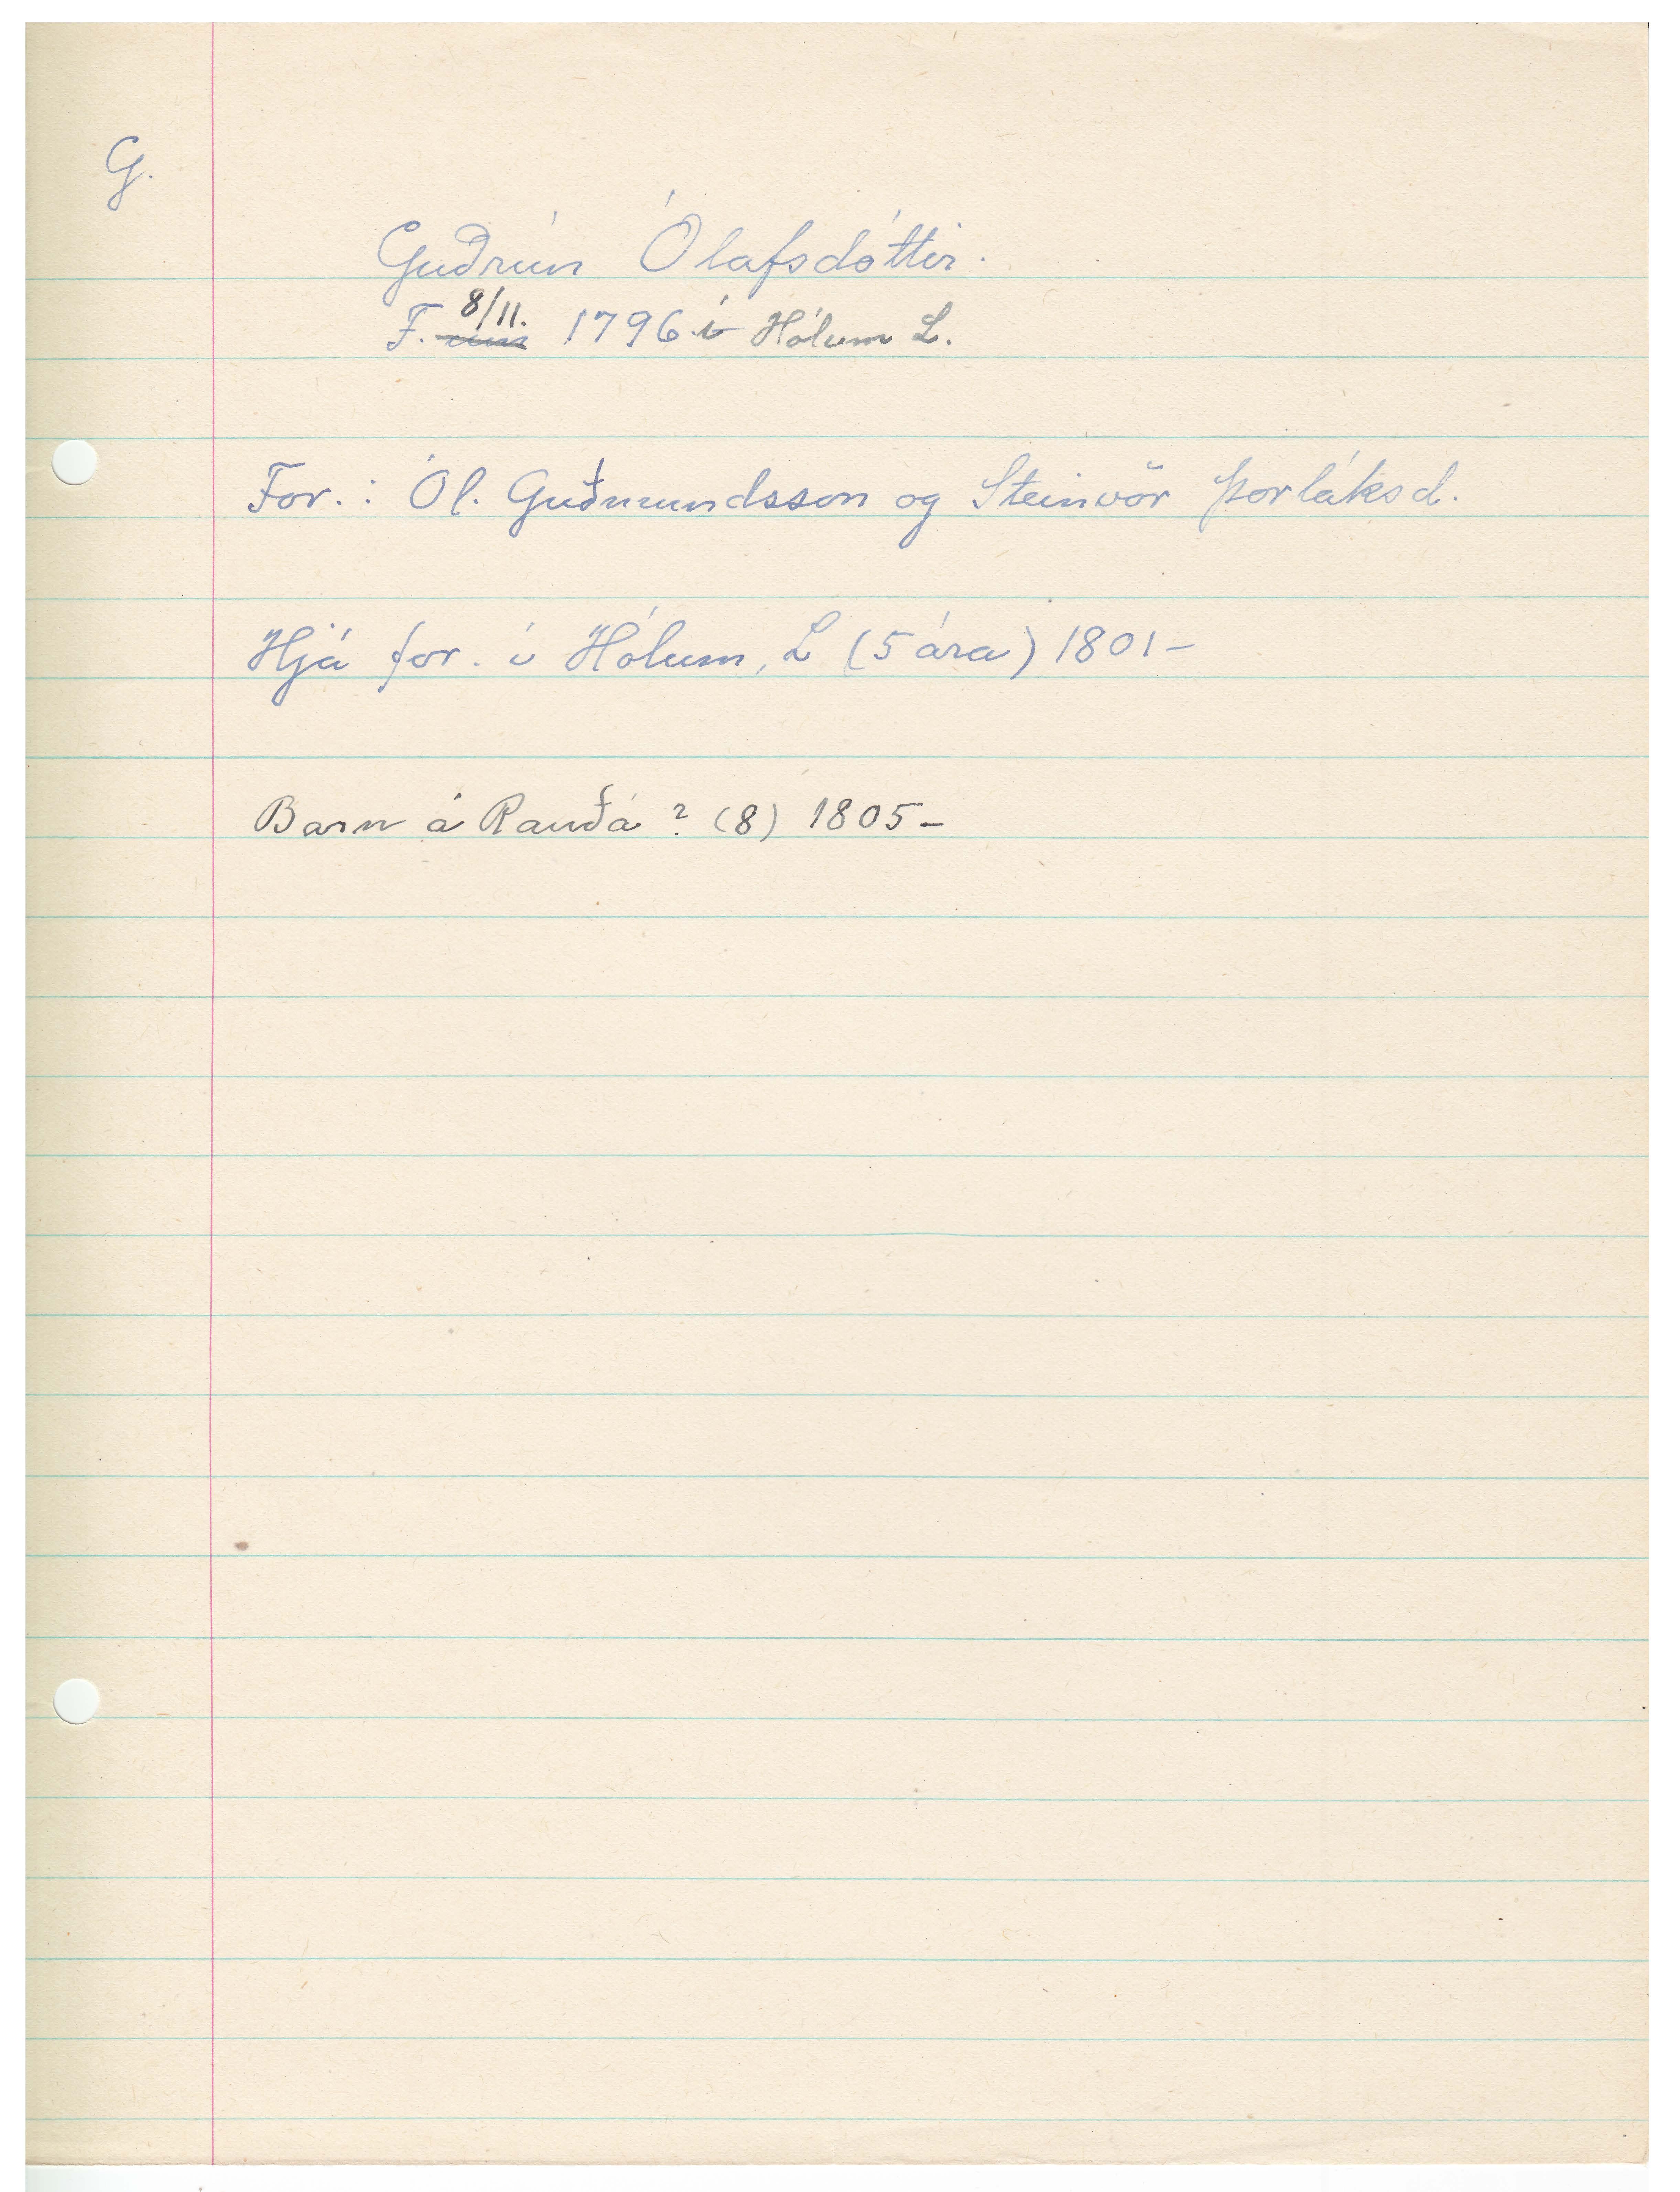 G.
Guðrún Ólafsdóttir.
F. ~~um~~ 8/11. 1796 í Hólum L.
For.: Ól. Guðmundsson og Steinvör Þorláksd.
Hjá for. í Hólum, L (5 ára) 1801-
Barn á Rauðá? (8) 1805-